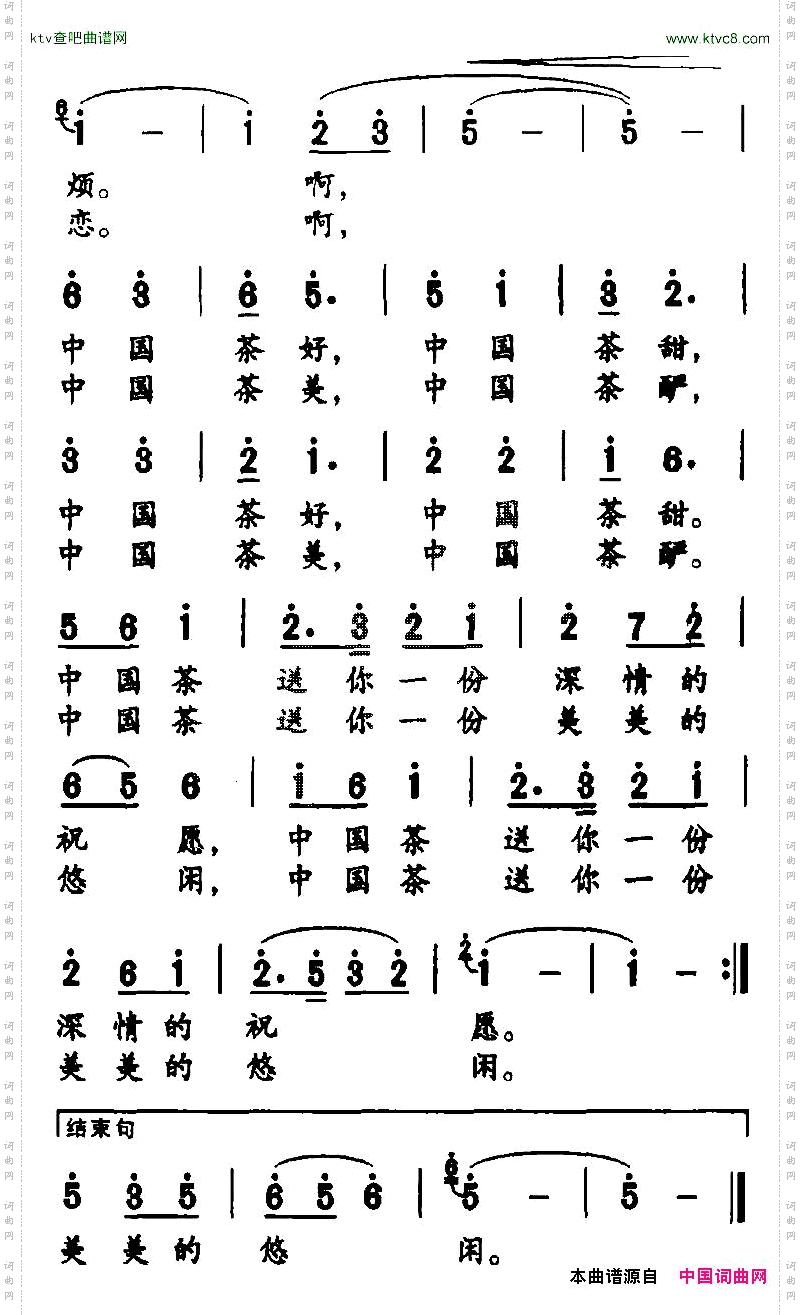 ktv查吧曲谱网 www.ktvc8.com
6 1 - | 1 2 3 | 5 - | 5 - |
烦。 啊，
恋。 啊，
6 3 | 6 5. | 5 1 | 3 2. |
中 国 茶 好， 中 国 茶 甜，
中 国 茶 美， 中 国 茶 酽，
3 3 | 2 1. | 2 2 | 1 6. |
中 国 茶 好， 中 国 茶 甜。
中 国 茶 美， 中 国 茶 酽。
5 6 1 | 2. 3 2 1 | 2 7 2 |
中 国 茶 送 你 一 份 深 情 的
中 国 茶 送 你 一 份 美 美 的
6 5 6 | 1 6 1 | 2. 3 2 1 |
祝 愿， 中 国 茶 送 你 一 份
悠 闲， 中 国 茶 送 你 一 份
2 6 1 | 2. 5 3 2 | 2 1 - | 1 - :|
深 情 的 祝 愿。
美 美 的 悠 闲。
结束句
5 3 5 | 6 5 6 | 6 5 - | 5 - |
美 美 的 悠 闲。
本曲谱源自 中国词曲网